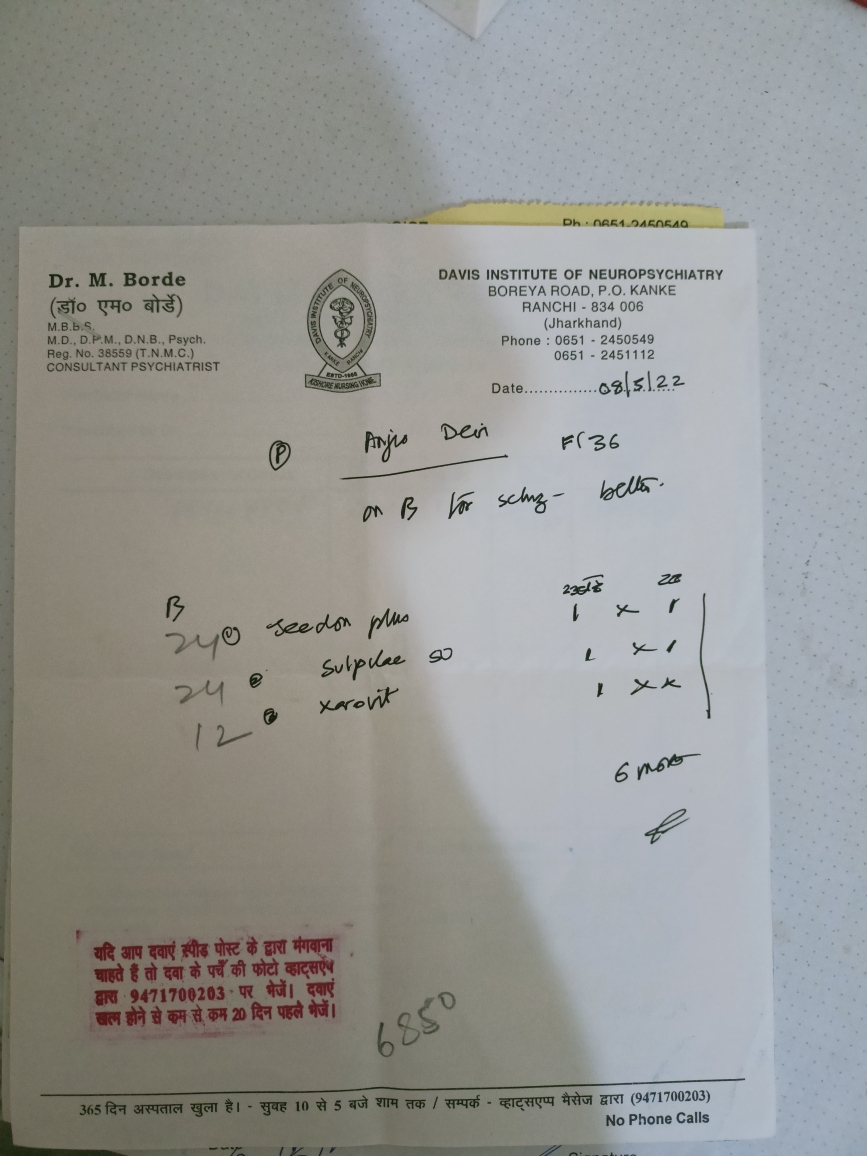 Ph : 0651-2450549
Dr. M. Borde
(डॉ० एम० बोर्डे)
M.B.B.S.
M.D., D.P.M., D.N.B., Psych.
Reg. No. 38559 (T.N.M.C.)
CONSULTANT PSYCHIATRIST
DAVIS INSTITUTE OF NEUROPSYCHIATRY
KANKE RANCHI
ESTD-1986
KISHORE NURSING HOME
DAVIS INSTITUTE OF NEUROPSYCHIATRY
BOREYA ROAD, P.O. KANKE
RANCHI - 834 006
(Jharkhand)
Phone : 0651 - 2450549
0651 - 2451112
Date................08/5/22
P F/36
on R for schz - better.
R
24 1 plus 1 x 1
24 2 50 1 x 1
12 3 1 x x
6
यदि आप दवाएं स्पीड पोस्ट के द्वारा मंगवाना
चाहते हैं तो दवा के पर्चे की फोटो व्हाट्सऐप
द्वारा 9471700203 पर भेजें। दवाएं
खत्म होने से कम से कम 20 दिन पहले भेजें।
6850
365 दिन अस्पताल खुला है। - सुबह 10 से 5 बजे शाम तक / सम्पर्क - व्हाट्सएप्प मैसेज द्वारा (9471700203)
No Phone Calls